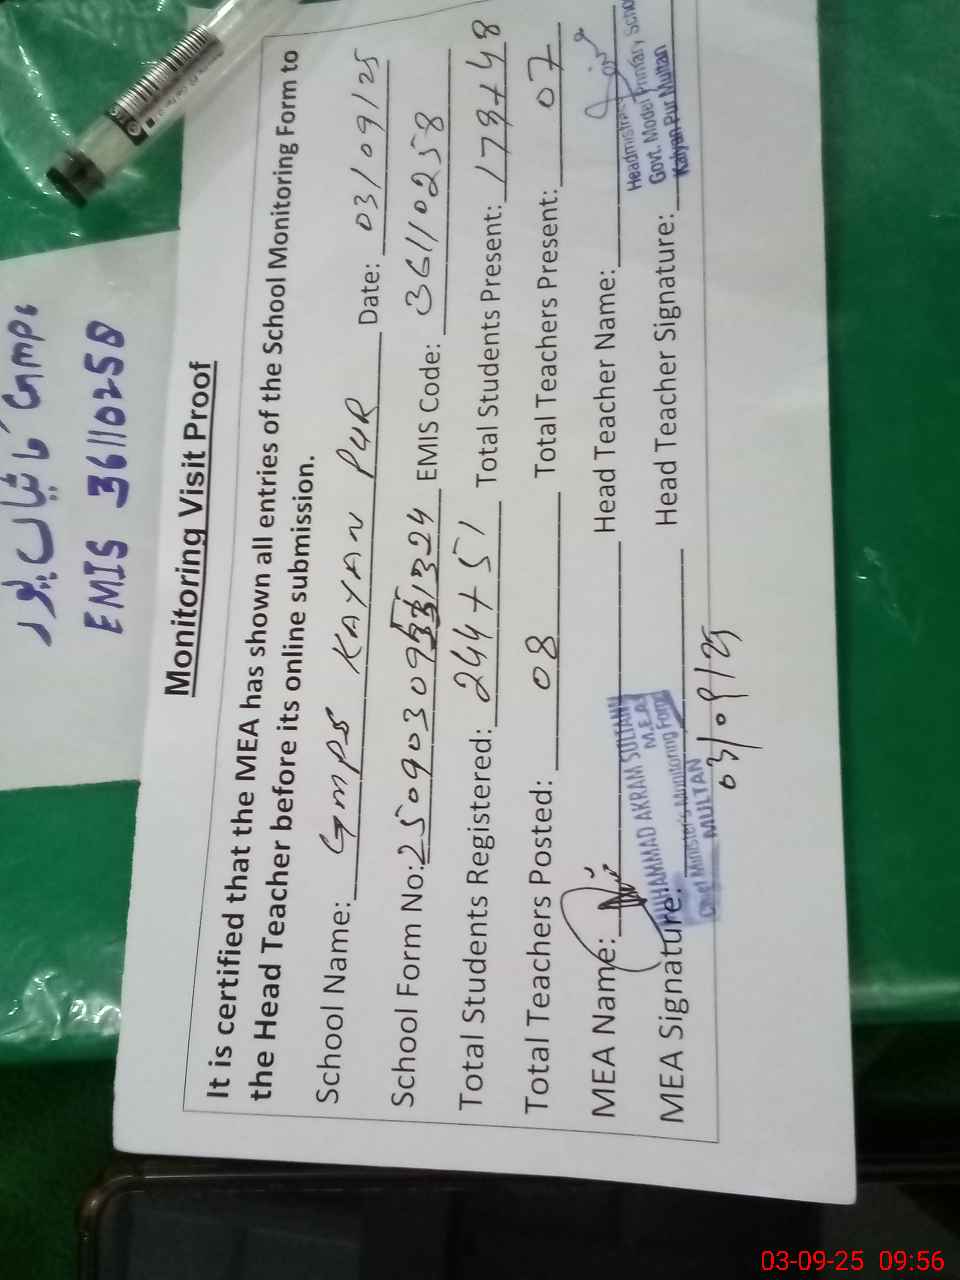 کائیاں پور GMPS
EMIS 36110258
Monitoring Visit Proof
It is certified that the MEA has shown all entries of the School Monitoring Form to
the Head Teacher before its online submission.
School Name: GMPS KAYAN PUR Date: 03/09/25
School Form No: EMIS Code: 36110258
Total Students Registered: 244+51 Total Students Present: 179+48
Total Teachers Posted: 08 Total Teachers Present: 07
MEA Name: Head Teacher Name:
MEA Signature: Head Teacher Signature:
MUHAMMAD AKRAM SULTANI
M.E.A
Chief Minister's Monitoring Force
MULTAN
03/09/25
Headmistress
Govt. Model Primary School
Kalyan Pur Multan
03-09-25 09:56